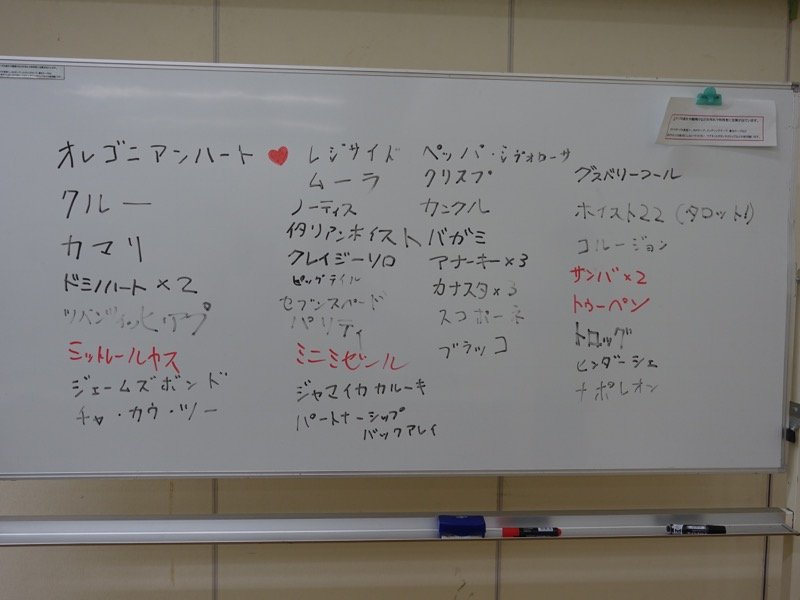 オレゴニアンハート♥
クルー
カマリ
ドミノハート×2
ミットレールヤス
ジェームズボンド
チャ・カウ・ツー
レジサイド
ムーラ
ノーティス
イタリアンホイスト
クレイジーソロ
ピッグテイル
セブンスペード
パリティ
ミニミゼール
ジャマイカカルーキ
パートナーシップ
バックアレイ
ペッパー・シヴォローサ
クリスプ
カンクル
バガミ
アナーキー×3
カナスタ×3
スコポーネ
ブラッコ
グズベリーフール
ホイスト22(タロット!)
コルージョン
サンバ×2
トゥーペン
トロッグ
ヒンダーシェ
ナポレオン